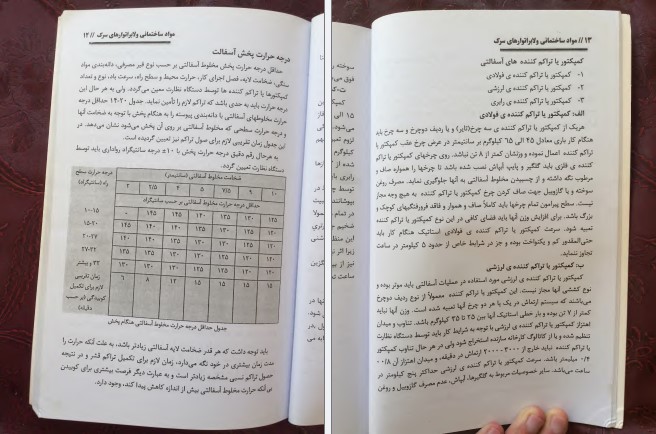 مواد ساختمانی ولابراتوارهای سرک // ۱۲
درجه حرارت پخش آسفالت
حداقل درجه حرارت پخش مخلوط آسفالتی بر حسب نوع قیر مصرفی، دانه‌بندی مواد
سنگی، ضخامت لایه، فصل اجرای کار، حرارت محیط و سطح راه، سرعت باد، نوع و تعداد
کمپکتورها یا تراکم کننده ها توسط دستگاه نظارت معین می‌گردد. ولی به هر حال این
درجه حرارت باید به حدی باشد که تراکم لازم را تأمین نماید. جدول ۲۰-۱۴ حداقل درجه
حرارت مخلوطهای آسفالتی با دانه‌بندی پیوسته را به هنگام پخش با توجه به ضخامت آنها
و درجه حرارت سطحی که مخلوط آسفالتی بر روی آن پخش می‌شود نشان می‌دهد. در
این جدول زمان تقریبی لازم برای حصول تراکم نیز تعیین گردیده است.
به هرحال رقم دقیق درجه حرارت پخش با ۱۰± درجه سانتیگراد رواداری باید توسط
دستگاه نظارت تعیین گردد.
درجه حرارت سطح راه (سانتیگراد)
ضخامت مخلوط آسفالتی (سانتیمتر)
۲ ۲/۵ ۴ ۵ ۷/۵ ۹ ۱۰
حداقل درجه حرارت مخلوط آسفالتی بر حسب سانتیگراد
۱۰-۱۵
۱۵-۲۰
۲۰-۲۷
۲۷-۳۲
۳۲ و بیشتر
زمان تقریبی لازم برای تکمیل کوبیدگی (بر حسب دقیقه)
۶ ۸ ۱۲ ۱۵ ۱۵ ۱۵ ۱۵
جدول حداقل درجه حرارت مخلوط آسفالتی هنگام پخش
باید توجه داشت که هر قدر ضخامت لایه آسفالتی زیادتر باشد، به علت آنکه حرارت را
مدت زمان بیشتری در خود نگه می‌دارد، زمان لازم برای تکمیل تراکم قشر و در نتیجه
حصول تراکم نسبی مشخصه زیادتر است و به عبارت دیگر فرصت بیشتری برای کوبیدن
بی آنکه حرارت مخلوط آسفالتی بیش از اندازه کاهش پیدا کند، وجود دارد.
۱۳ // مواد ساختمانی ولابراتوارهای سرک
کمپکتور یا تراکم کننده های آسفالتی
۱- کمپکتور یا تراکم کننده ی فولادی
۲- کمپکتور یا تراکم کننده ی لرزشی
۳- کمپکتور یا تراکم کننده ی رابری
الف: کمپکتور یا تراکم کننده ی فولادی
هریک از کمپکتور یا تراکم کننده ی سه چرخ(تایر) و یا ردیف دوچرخ و سه چرخ باید
هنگام کار باری معادل ۴۵ الی ۶۵ کیلوگرم بر سانتیمتر در عرض چرخ عقب کمپکتور یا
تراکم کننده اعمال نموده و وزنشان کمتر از ۸ تن نباشد. روی چرخهای کمپکتور یا تراکم
کننده ی فلزی باید گلگیر و پایپ آبپاش نصب شده باشد تا چرخها را همواره صاف و
مرطوب نگه داشته و از چسبیدن مخلوط آسفالتی به آنها جلوگیری نماید. مصرف روغن
سوخته و یا گازوییل جهت صاف کردن چرخ کمپکتور یا تراکم کننده به هیچ وجه مجاز
نیست. سطح پیرامون تمام چرخها باید کاملاً صاف و هموار و فاقد فرورفتگیهای کوچک و
بزرگ باشد. برای افزایش وزن آنها باید فضای کافی در این نوع کمپکتور یا تراکم کننده
تعبیه شود. سرعت کمپکتور یا تراکم کننده ی فولادی استاتیک هنگام کار باید
حتی‌المقدور کم و یکنواخت بوده و جز در شرایط خاص از حدود ۵ کیلومتر در ساعت
تجاوز ننماید.
ب: کمپکتور یا تراکم کننده ی لرزشی
کمپکتور یا تراکم کننده ی لرزشی مورد استفاده در عملیات آسفالتی باید موتر بوده و
نوع کششی آنها مجاز نیست. این کمپکتور یا تراکم کننده معمولاً از نوع ردیف دوچرخ
می‌باشند که سیستم ارتعاش در یک یا هر دو چرخ آنها تعبیه شده است. وزن آنها نباید
کمتر از ۷ تن بوده و بار خطی استاتیک آنها بین ۲۵ تا ۳۵ کیلوگرم باشد. تناوب و میدان
اهتزاز کمپکتور یا تراکم کننده ی لرزشی با توجه به شرایط کار باید توسط دستگاه نظارت
تنظیم شده و یا از کاتالوگ کارخانه سازنده استخراج شود ولی در هر حال تناوب کمپکتور
یا تراکم کننده نباید خارج از ۳۰۰۰-۲۰۰۰ ارتعاش در دقیقه و میدان اهتزاز آن ۰/۸-
۰/۴ میلیمتر باشد. سرعت کمپکتور یا تراکم کننده ی لرزشی حداکثر پنج کیلومتر در
ساعت می‌باشد. سایر خصوصیات مربوط به گلگیرها، آبپاش، عدم مصرف گازوییل و روغن